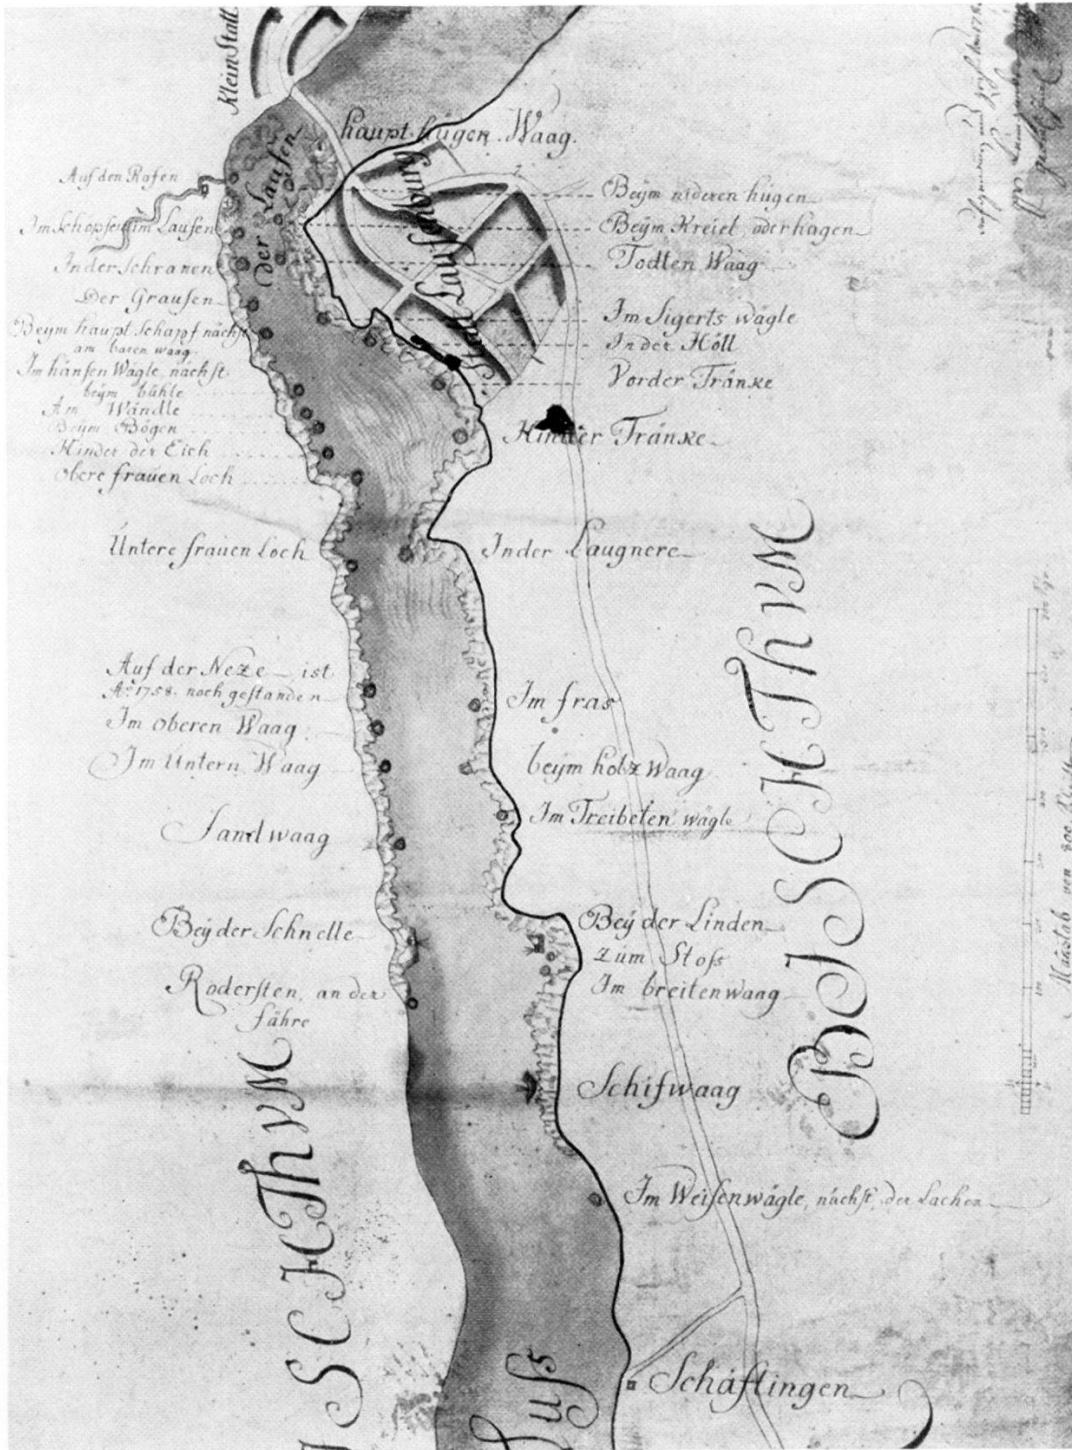 Klein Statt
haupt hügen Waag.
der Laufen
Statt Lauffenburg
Auf den Rafen
Im Schopfen im Laufen
In der Schranen
Der Graufen
Beym haupt Schapf nächst
am baren waag
Im hänsen Wägle, nächst
beÿm bühle
Am Wändle
Beÿm Bögen
Hinder der Eich
Obere frauen Loch
Untere frauen Loch
Auf der Neze ist
Aº 1758. noch gestanden
Im Oberen Waag
Im Untern Waag
Sandwaag
Beÿ der Schnelle
Rodersten, an der
fähre
Beÿm nideren hügen
Beÿm Kreiel, oder hagen
Todten Waag
Im Sigerts wägle
In der Höll
Vorder Tränke
Hinder Tränke
In der Laugnere
Im fras
beÿm holz Waag
Im Treibeten wägle
Beÿ der Linden
zum Stoß
Im breitenwaag
Schifwaag
Im Weisenwägle, nächst, der Lachen
Schäftingen
BISCHThVM
ISCHThVM
luß
Maastab von 800